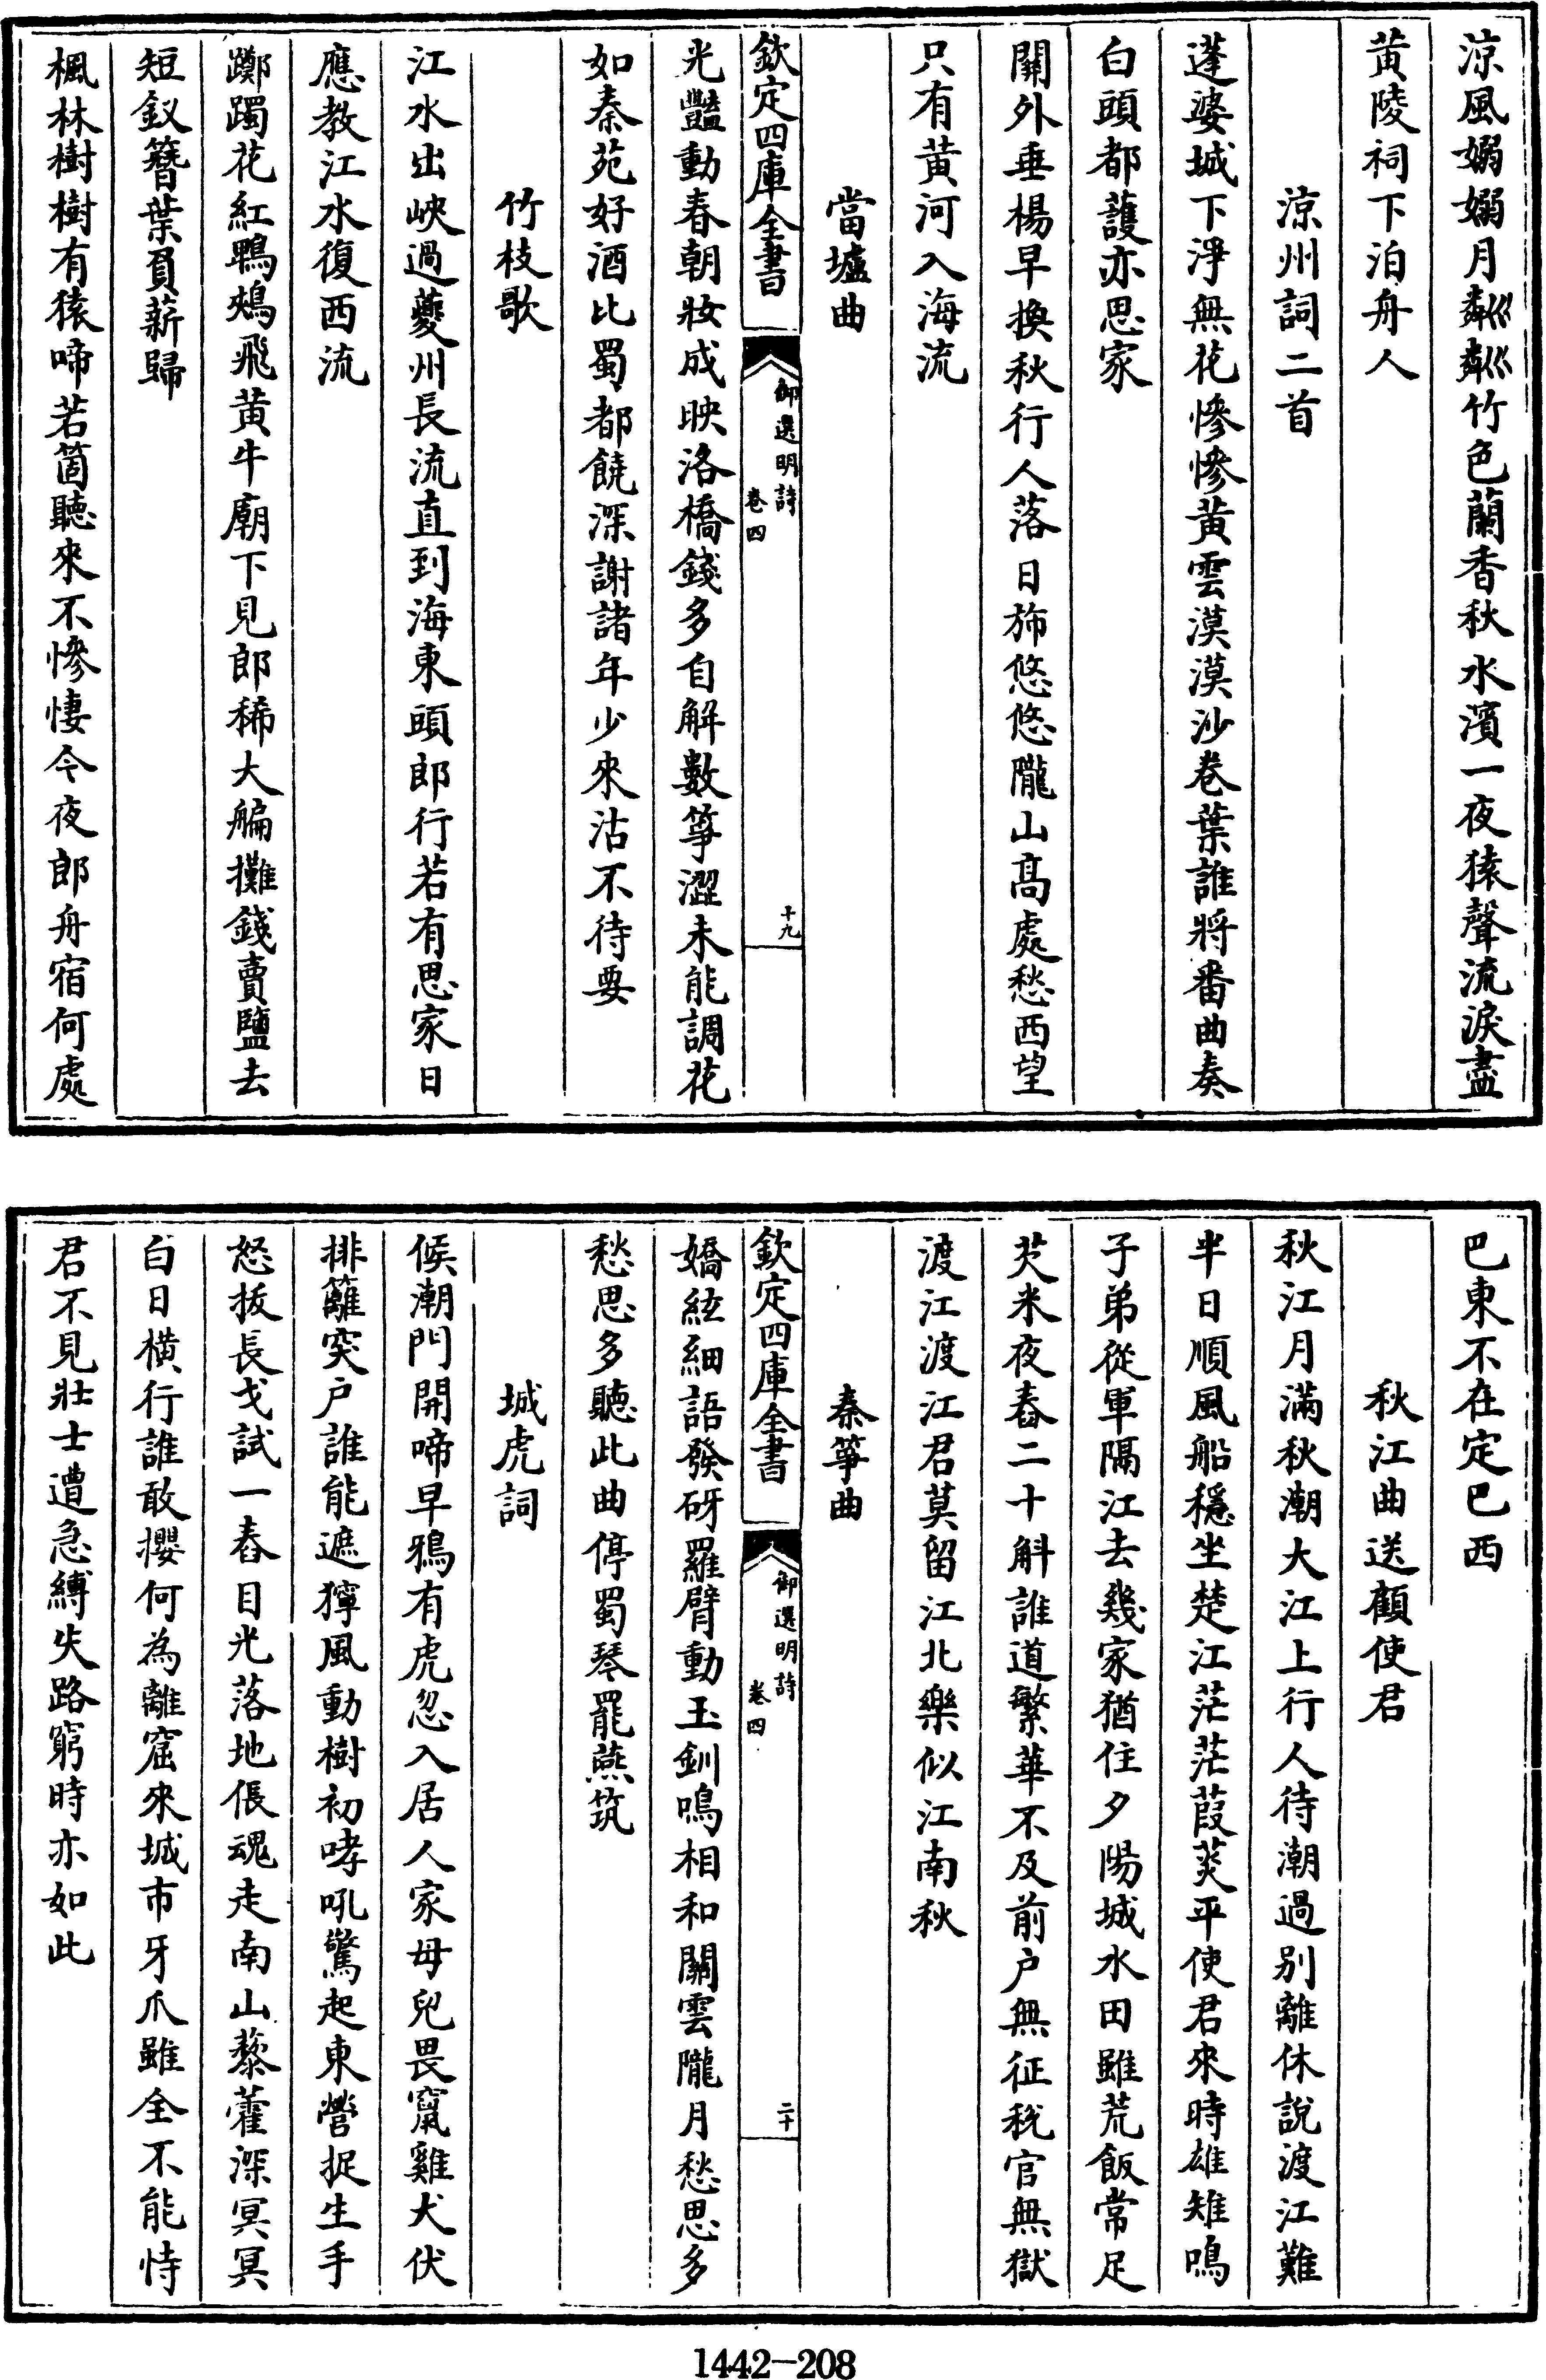 涼風嫋嫋月粼粼竹色蘭香秋水濱一夜猿聲流淚盡
黄陵祠下泊舟人
涼州詞二首
蓬婆城下淨無花慘慘黄雲漠漠沙卷葉誰將番曲奏
白頭都䕶亦思家
關外垂楊早換秋行人落日斾悠悠隴山髙處愁西望
只有黄河入海流
當壚曲
欽定四庫全書
御選明詩
卷四
十九
光豔動春朝妝成映洛橋錢多自解數筝澀未能調花
如秦苑好酒比蜀都饒深謝諸年少來沽不待要
竹枝歌
江水出峽過夔州長流直到海東頭郎行若有思家日
應教江水復西流
躑躅花紅鵯鵊飛黄牛廟下見郎稀大艑攤錢賣鹽去
短釵簪葉負薪歸
楓林樹樹有猿啼若箇聽來不慘悽今夜郎舟宿何處
巴東不在定巴西
秋江曲送顧使君
秋江月滿秋潮大江上行人待潮過别離休說渡江難
半日順風船穩坐楚江茫茫葭菼平使君來時雄雉鳴
子弟從軍隔江去幾家猶住夕陽城水田雖荒飯常足
芡米夜舂二十斛誰道繁華不及前户無征稅官無獄
渡江渡江君莫留江北樂似江南秋
秦筝曲
欽定四庫全書
御選明詩
卷四
二十
嬌絃細語發砑羅臂動玉釧鳴相和關雲隴月愁思多
愁思多聽此曲停蜀琴罷燕筑
城虎詞
候潮門開啼早鴉有虎忽入居人家母兒畏竄雞犬伏
排籬突户誰能遮獰風動樹初哮吼驚起東營捉生手
怒拔長戈試一舂目光落地倀魂走南山藜藿深冥冥
白日橫行誰敢攖何為離窟來城市牙爪雖全不能恃
君不見壯士遭急縛失路窮時亦如此
1442-208